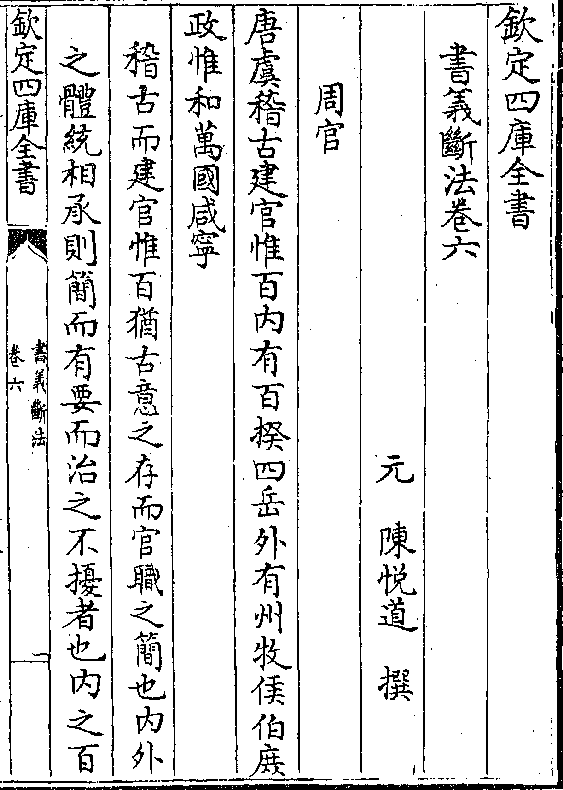 欽定四庫全書
書義斷法卷六
元 陳悅道 撰
周官
唐虞稽古建官惟百内有百揆四岳外有州牧侯伯庶
政惟和萬國咸寧
稽古而建官惟百猶古意之存而官職之簡也内外
之體統相承則簡而有要而治之不擾者也内之百
欽定四庫全書
書義斷法
卷六
一